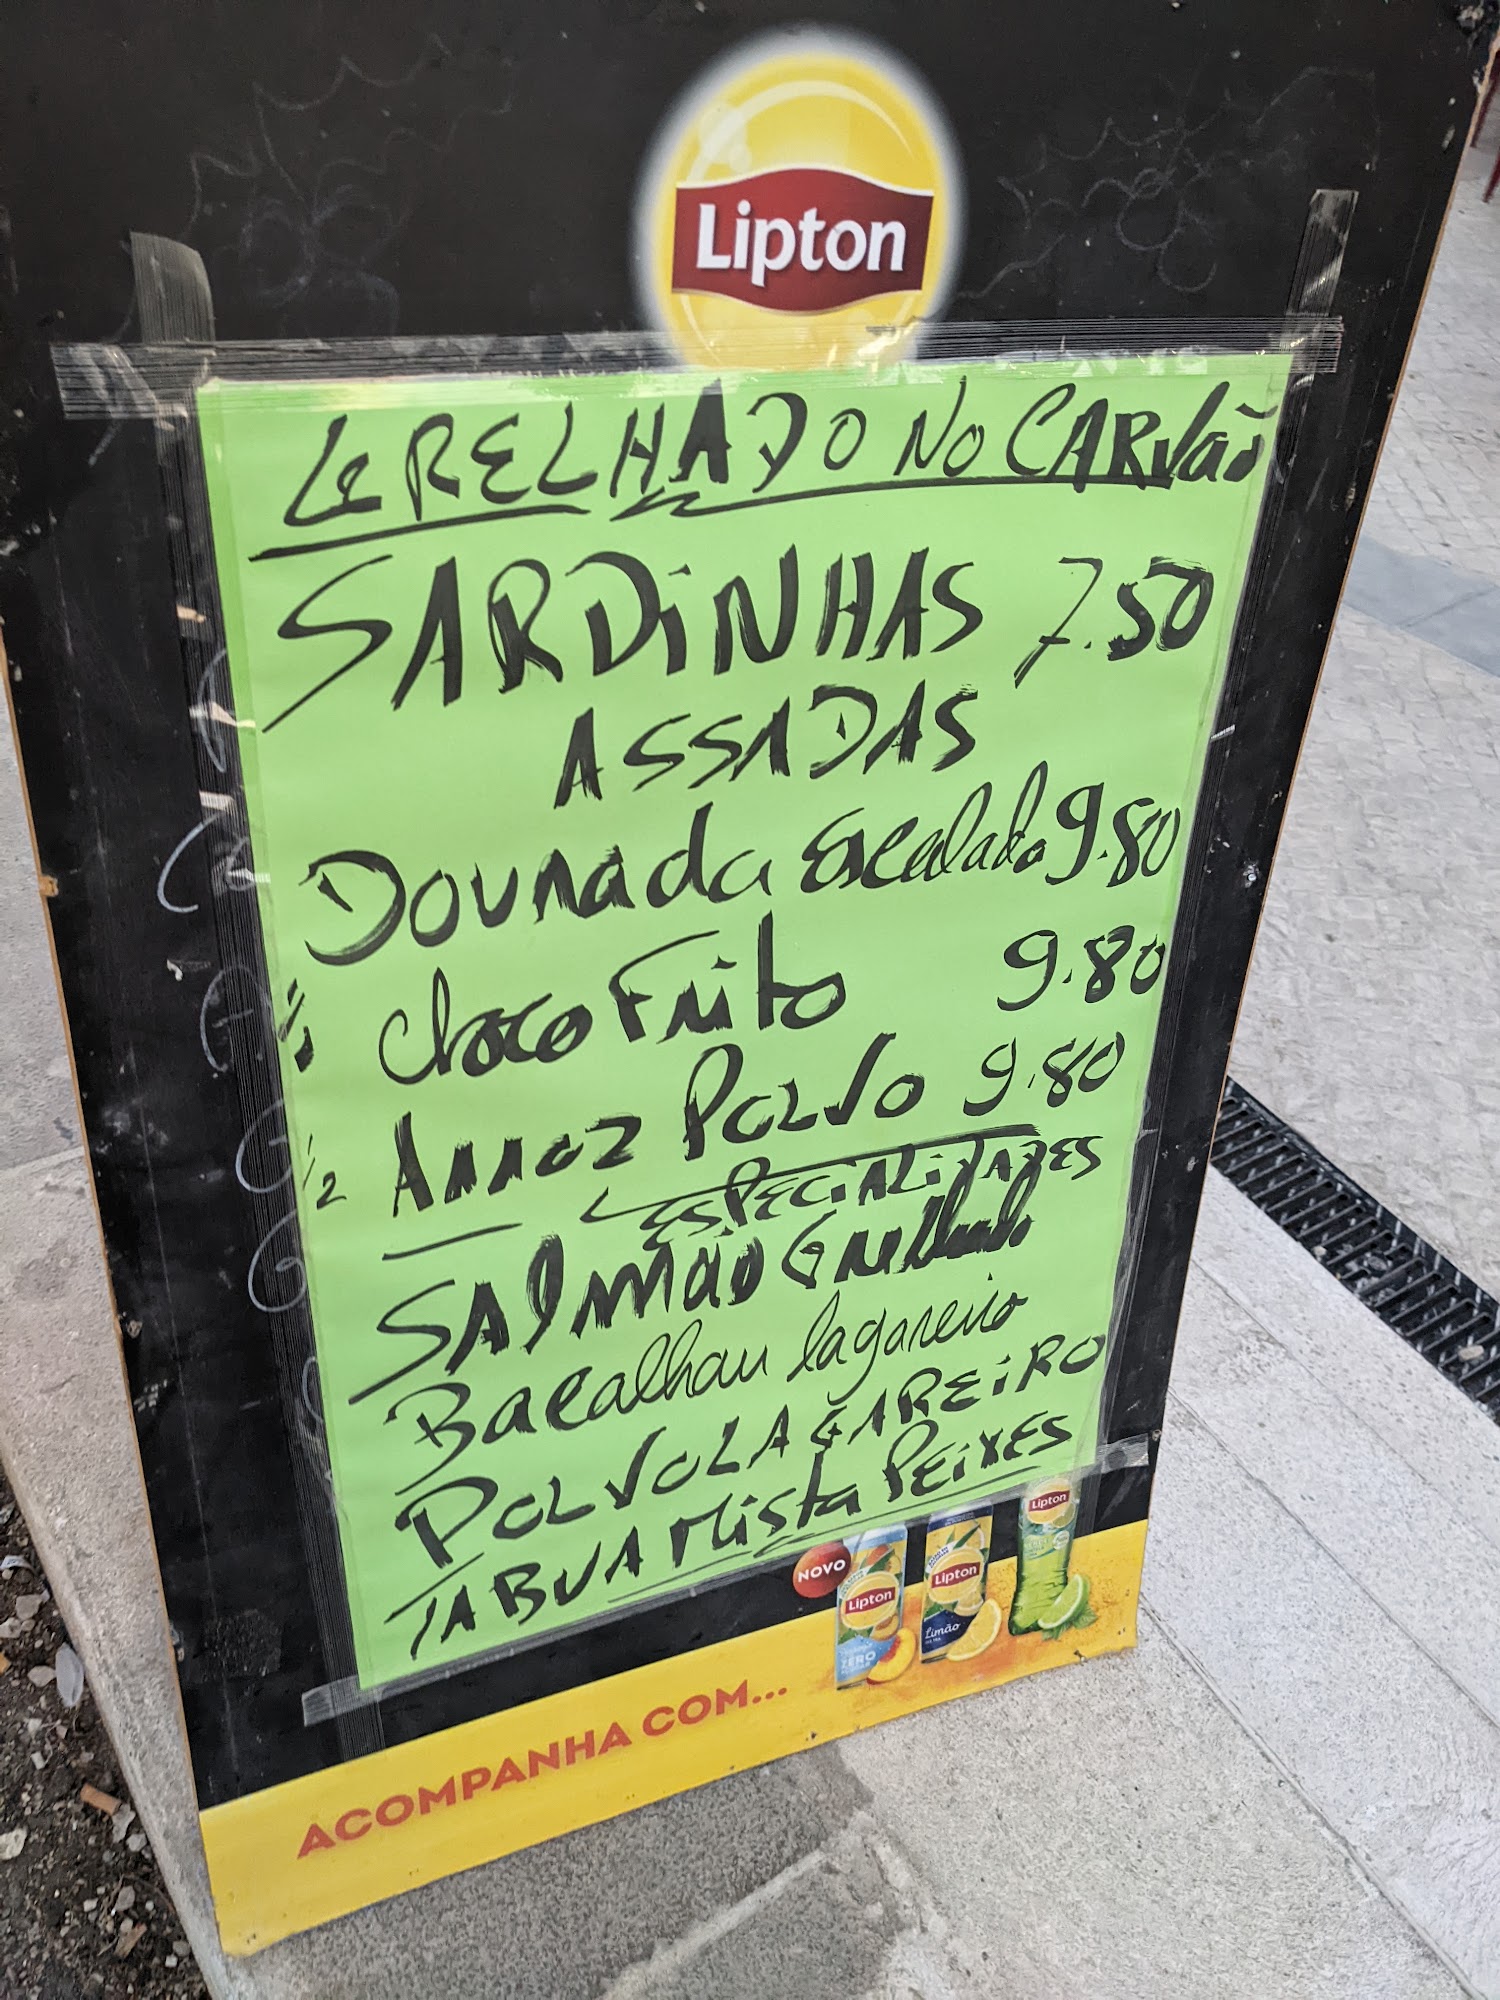 Lipton
GRELHADO NO CARVão
SARDiNHAS 7.50
ASSADAS
Dourada Escalada 9.80
1/2 choco Frito 9.80
1/2 Arroz Polvo 9.80
ESPECIALIDADES
SAlmão Grelhado
Bacalhau lagareiro
POLVO LAGAREiRO
TABUA Mista PEiXES
NOVO
Lipton
ZERO
Lipton
Limão
Lipton
ACOMPANHA COM...